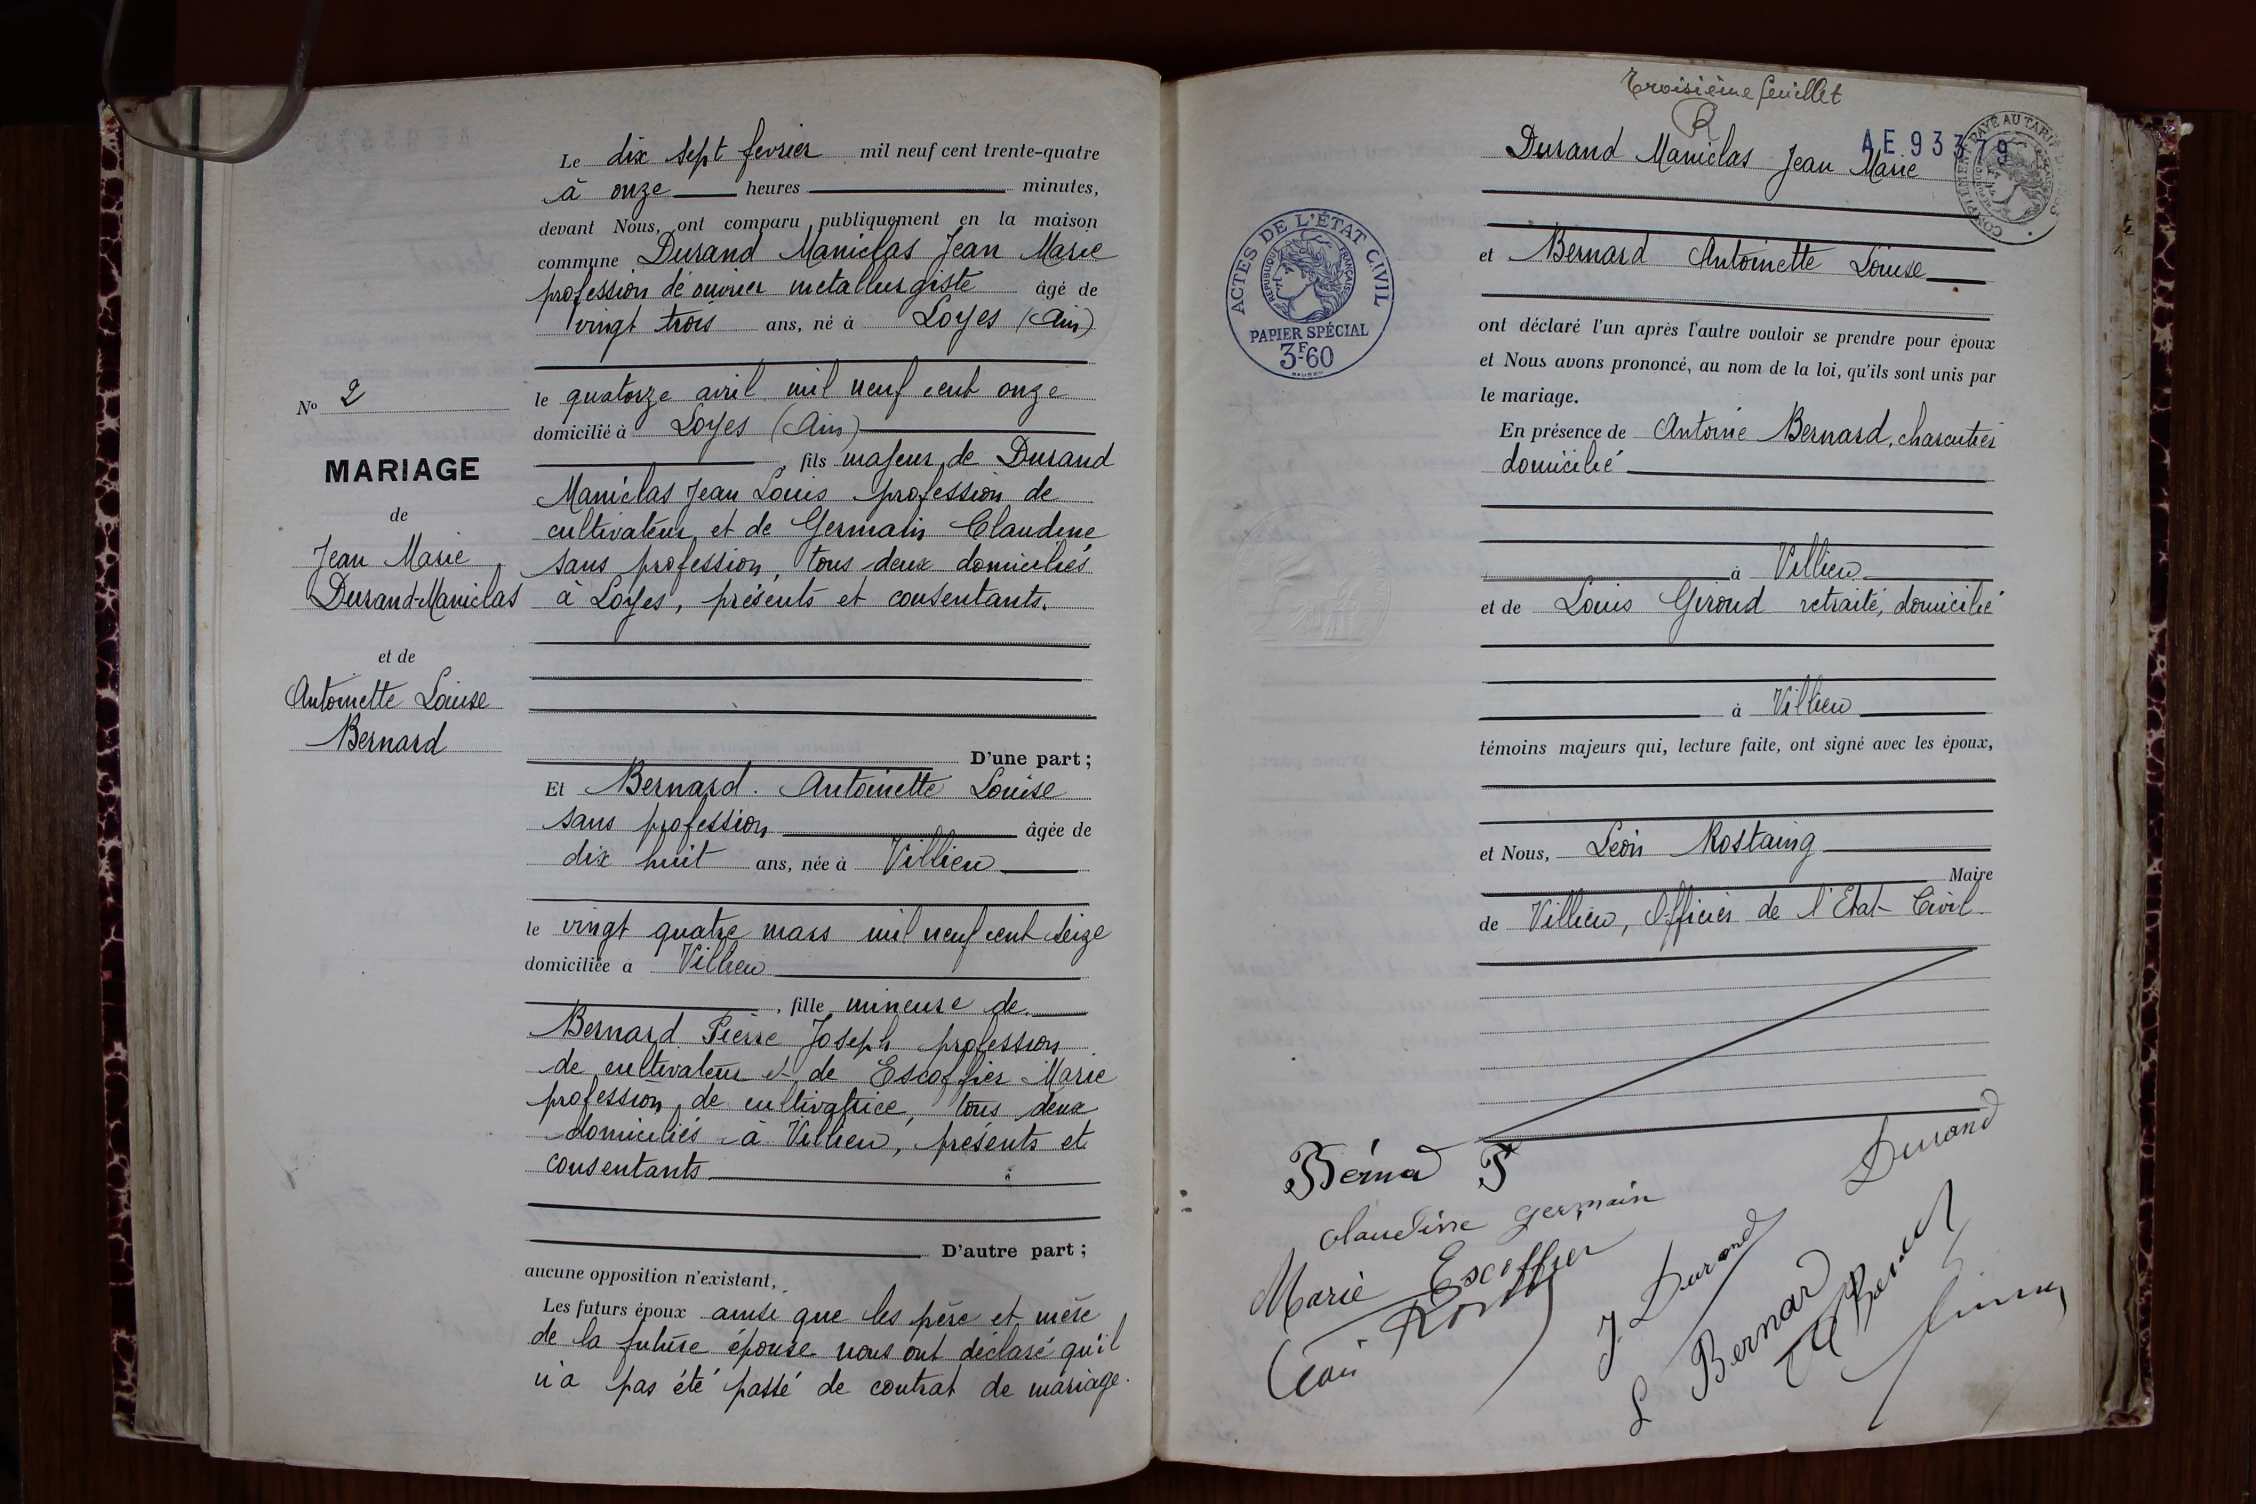 Le dix sept fevrier mil neuf cent trente-quatre
à onze heures minutes,
devant Nous, ont comparu publiquement en la maison
commune Durand Maniclas Jean Marie
profession de ouvrier metallurgiste âgé de
vingt trois ans, né à Loyes (Ain)
le quatorze avril mil neuf cent onze
domicilié à Loyes (Ain)
, fils majeur de Durand
Maniclas Jean Louis profession de
cultivateur et de Germain Claudine
sans profession, tous deux domiciliés
à Loyes, présents et consentants.
D'une part ;
Et Bernard Antoinette Louise
sans profession âgée de
dix huit ans, née à Villieu
le vingt quatre mars mil neuf cent seize
domiciliée à Villieu
, fille mineure de
Bernard Pierre Joseph profession
de cultivateur et de Escoffier Marie
profession de cultivatrice, tous deux
domiciliés à Villieu, présents et
consentants
D'autre part ;
aucune opposition n'existant,
Les futurs époux ainsi que les père et mère
de la future épouse nous ont déclaré qu'il
n'a pas été passé de contrat de mariage.
No 2
MARIAGE
de
Jean Marie
Durand-Maniclas
et de
Antoinette Louise
Bernard
Troisième feuillet
R
AE 93379
Durand Maniclas Jean Marie
et Bernard Antoinette Louise
ACTES DE L'ÉTAT CIVIL
RÉPUBLIQUE FRANÇAISE
PAPIER SPÉCIAL
3F60
ont déclaré l'un après l'autre vouloir se prendre pour époux
et Nous avons prononcé, au nom de la loi, qu'ils sont unis par
le mariage.
En présence de Antoine Bernard, charcutier
domicilié
à Villieu
et de Louis Giroud retraité, domicilié
à Villieu
témoins majeurs qui, lecture faite, ont signé avec les époux,
et Nous, Léon Rostaing
Maire
de Villieu, Officier de l'Etat Civil
Bérnad P
Durand
Claudine germain
Marie Escoffier
J. Durand
L Bernard